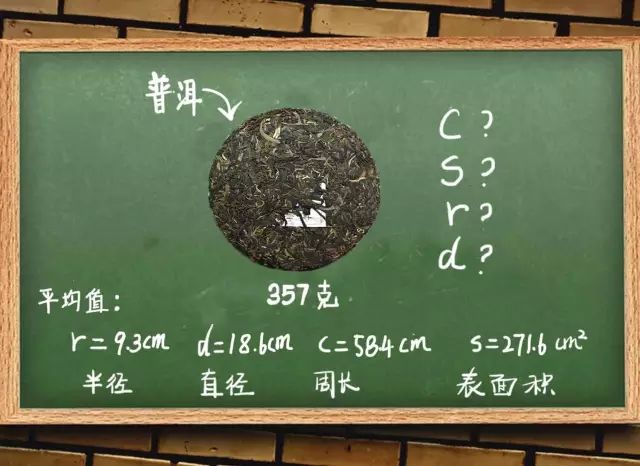 普洱
C?
S?
r?
d?
357克
平均值：
r=9.3cm d=18.6cm c=58.4cm s=271.6cm²
半径 直径 周长 表面积